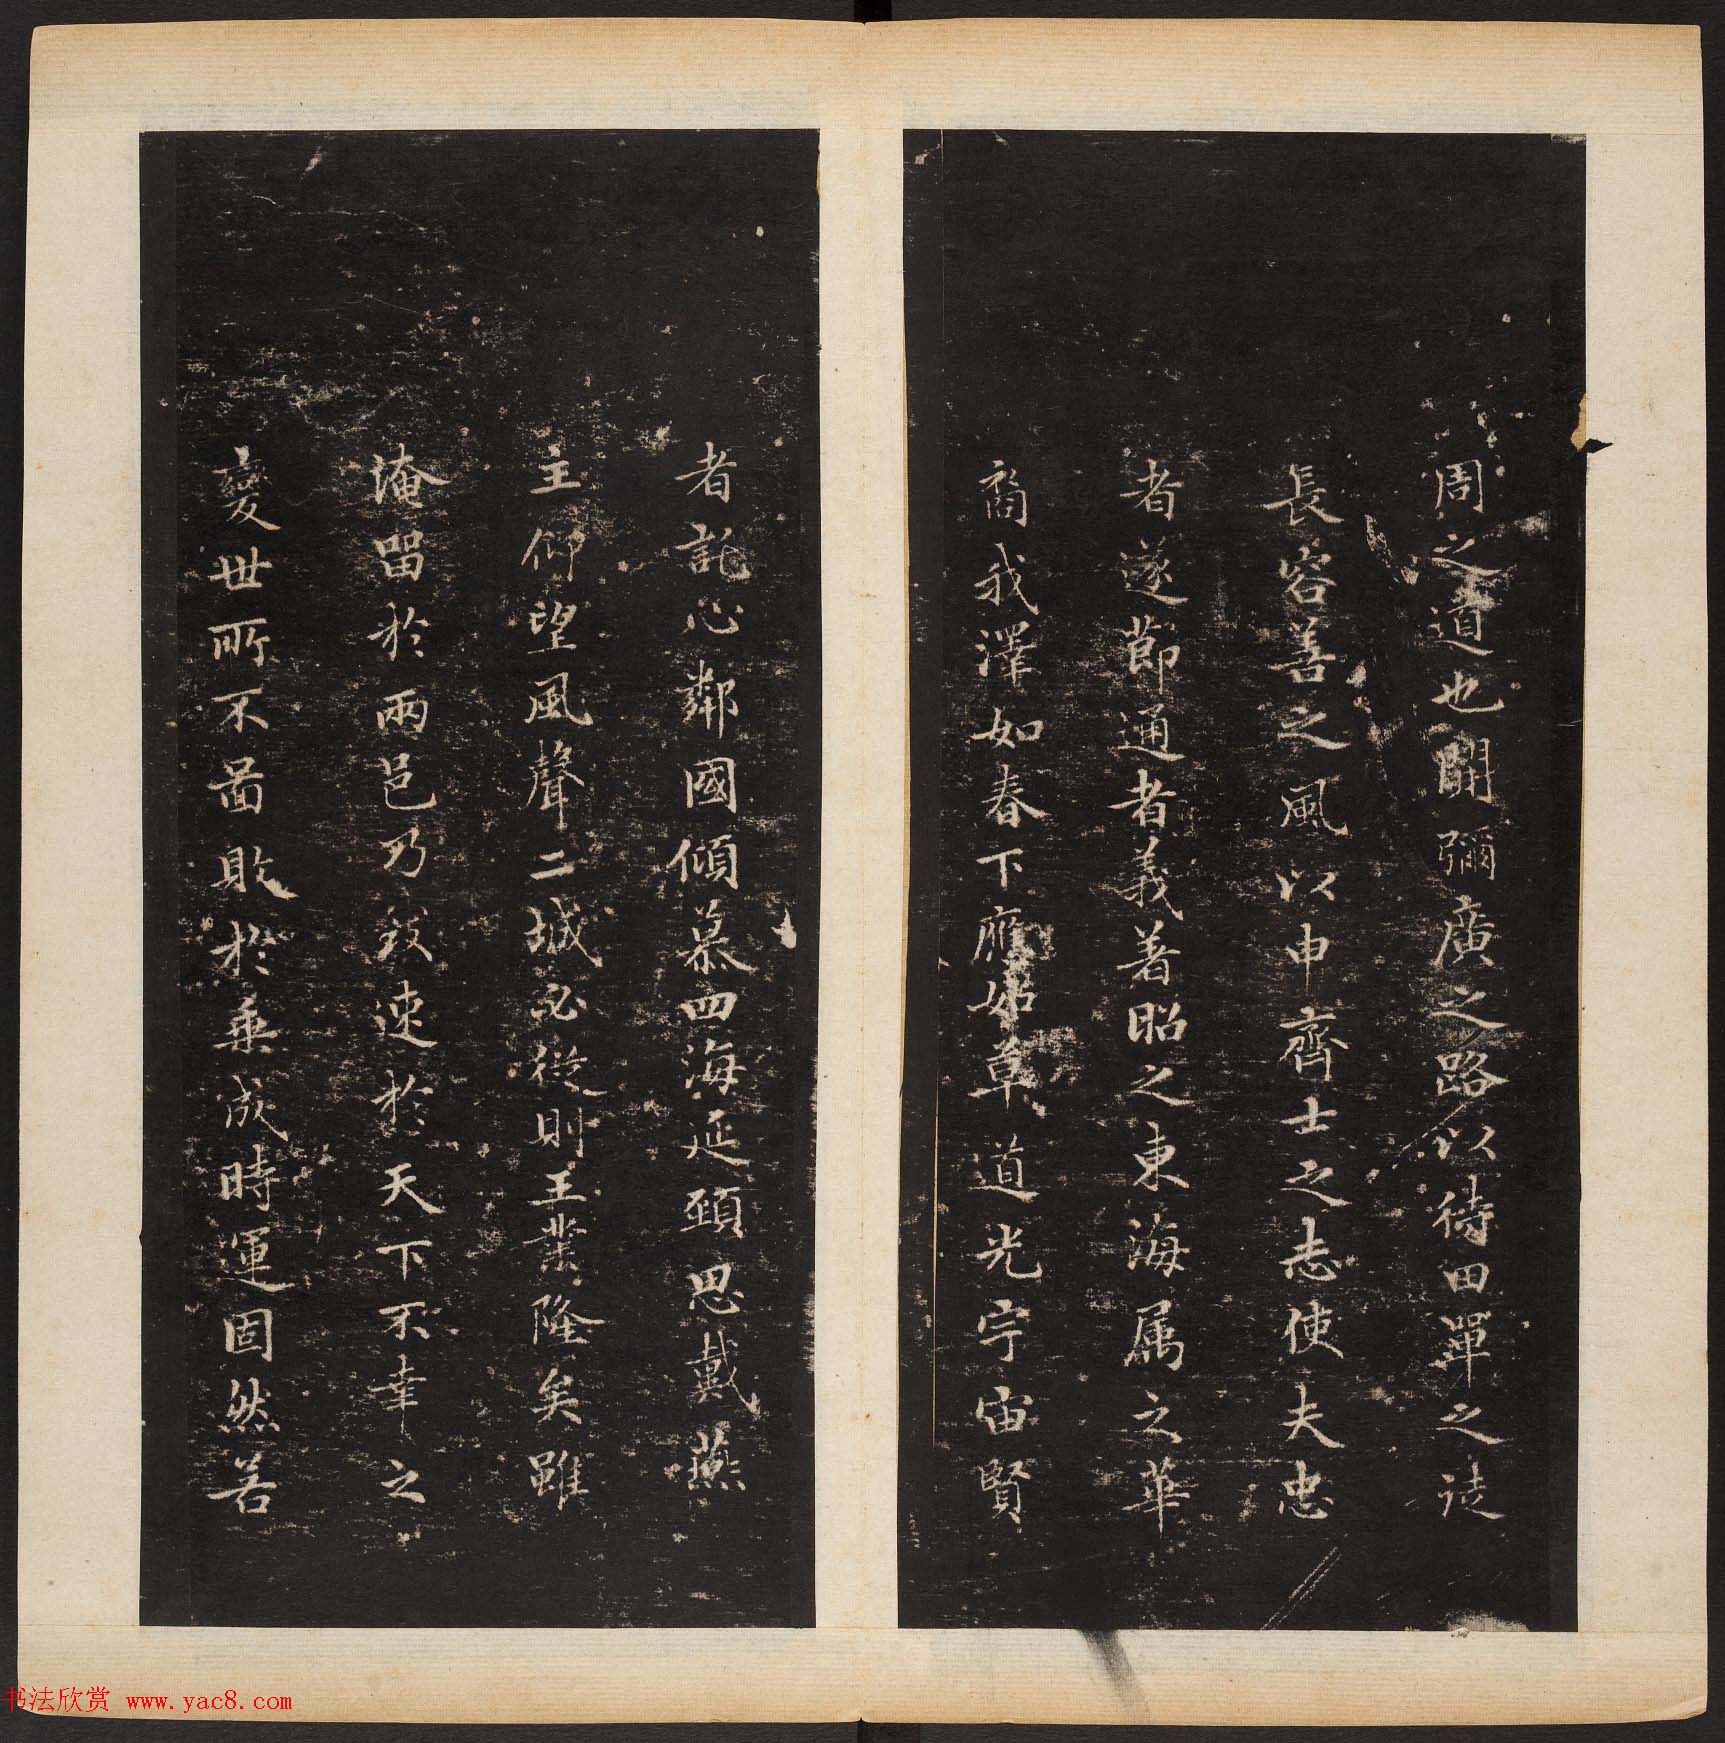 周之道也開彌廣之路以待田單之徒
長容善之風以申齊士之志使夫忠
者遂節通者義著昭之東海属之華
裔我澤如春下應如草道光宇宙賢
者託心鄰國傾慕四海延頸思戴燕
主仰望風聲二城必從則王業隆矣雖
淹留於兩邑乃致速於天下不幸之
變世所不啚敗於垂成時運固然若
书法欣赏 www.yac8.com